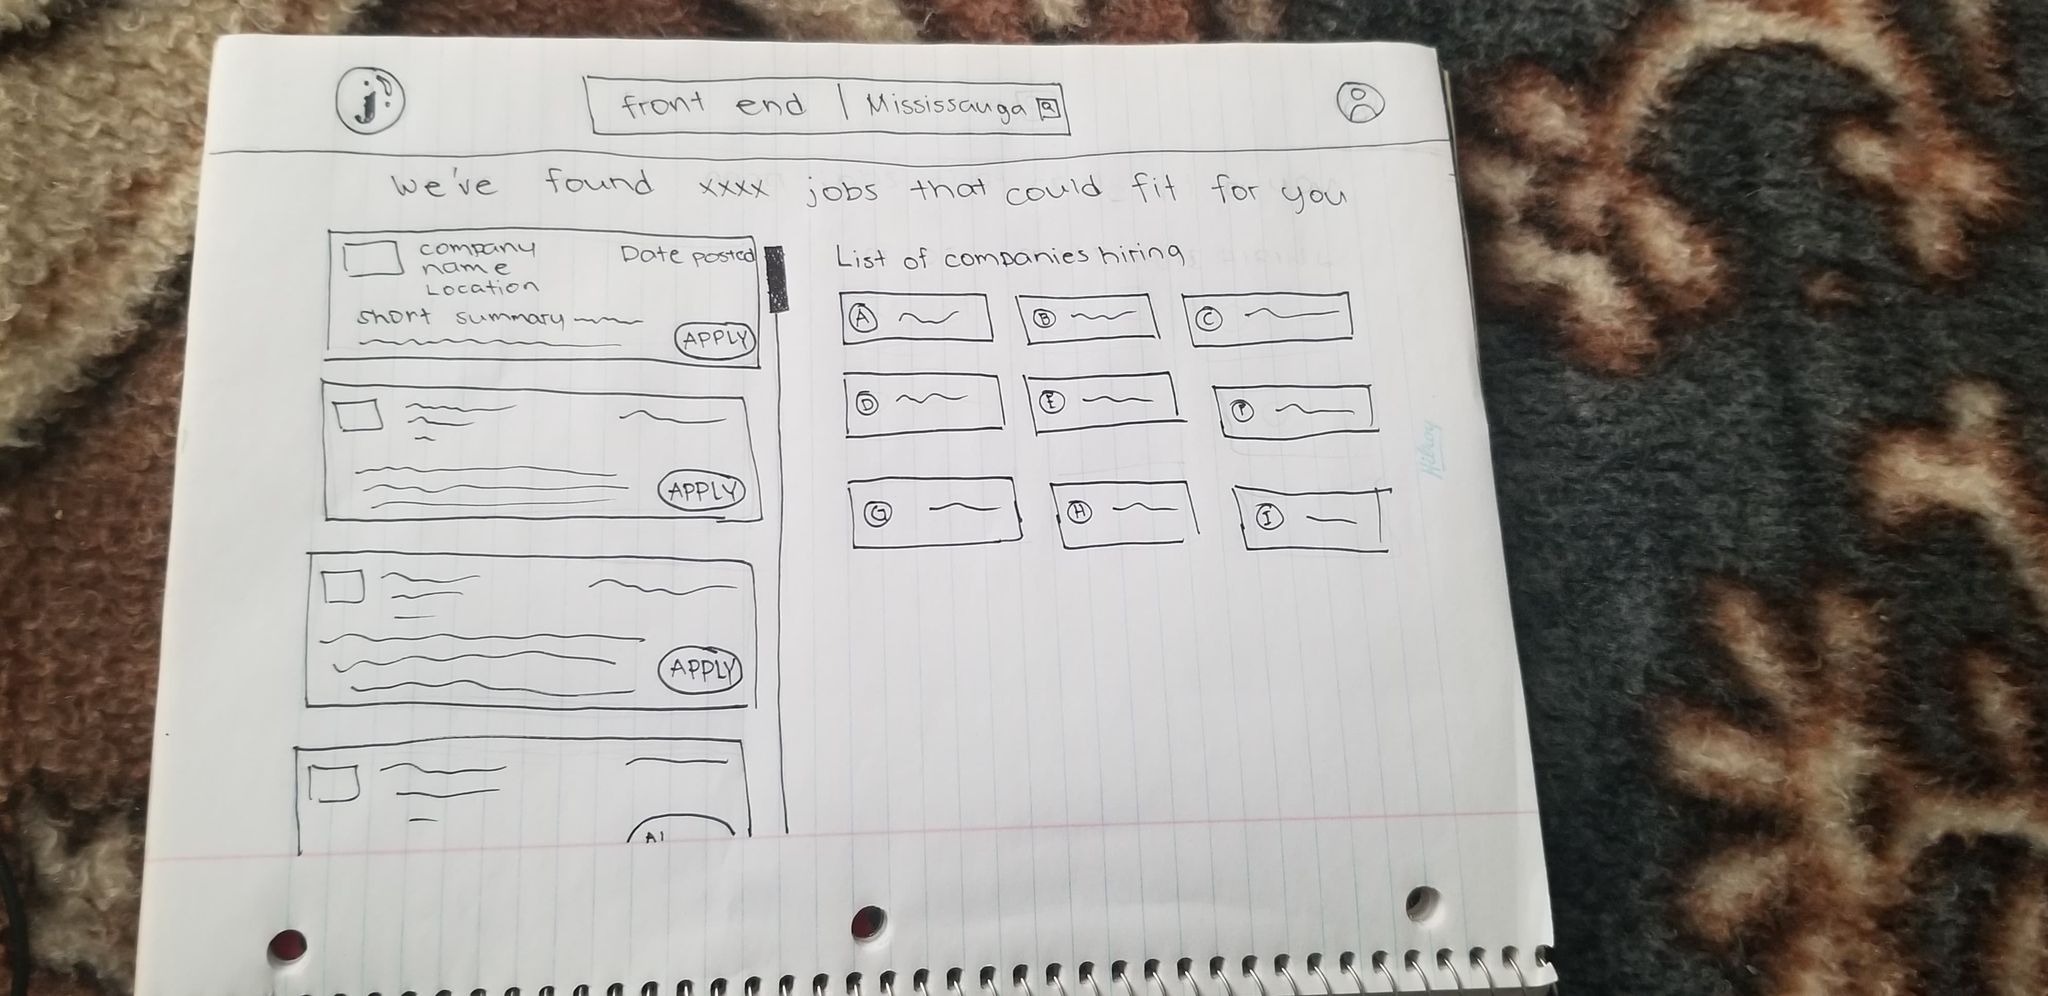 j
front end | Mississauga
we've found xxxx jobs that could fit for you
company
name
Location
Date posted
short summary
APPLY
APPLY
APPLY
List of companies hiring
A
B
C
D
E
F
G
H
I
Hilroy